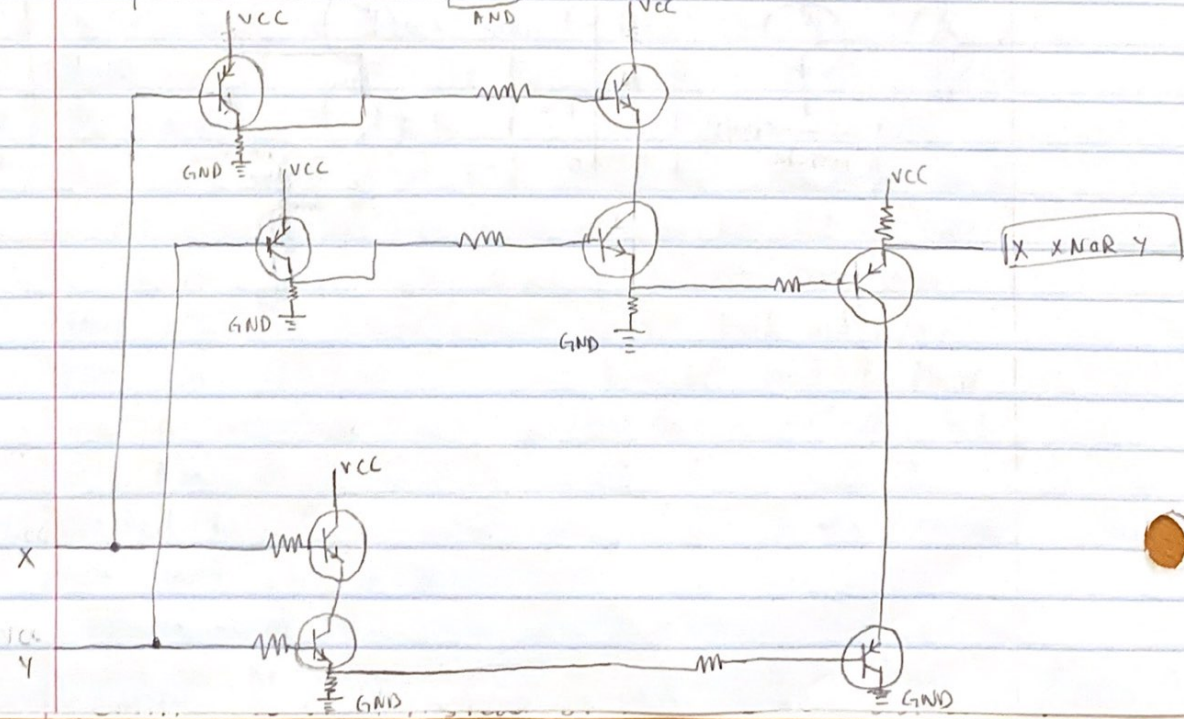 VCC
AND
VCC
GND
VCC
VCC
X XNOR Y
GND
GND
VCC
X
Y
GND
GND